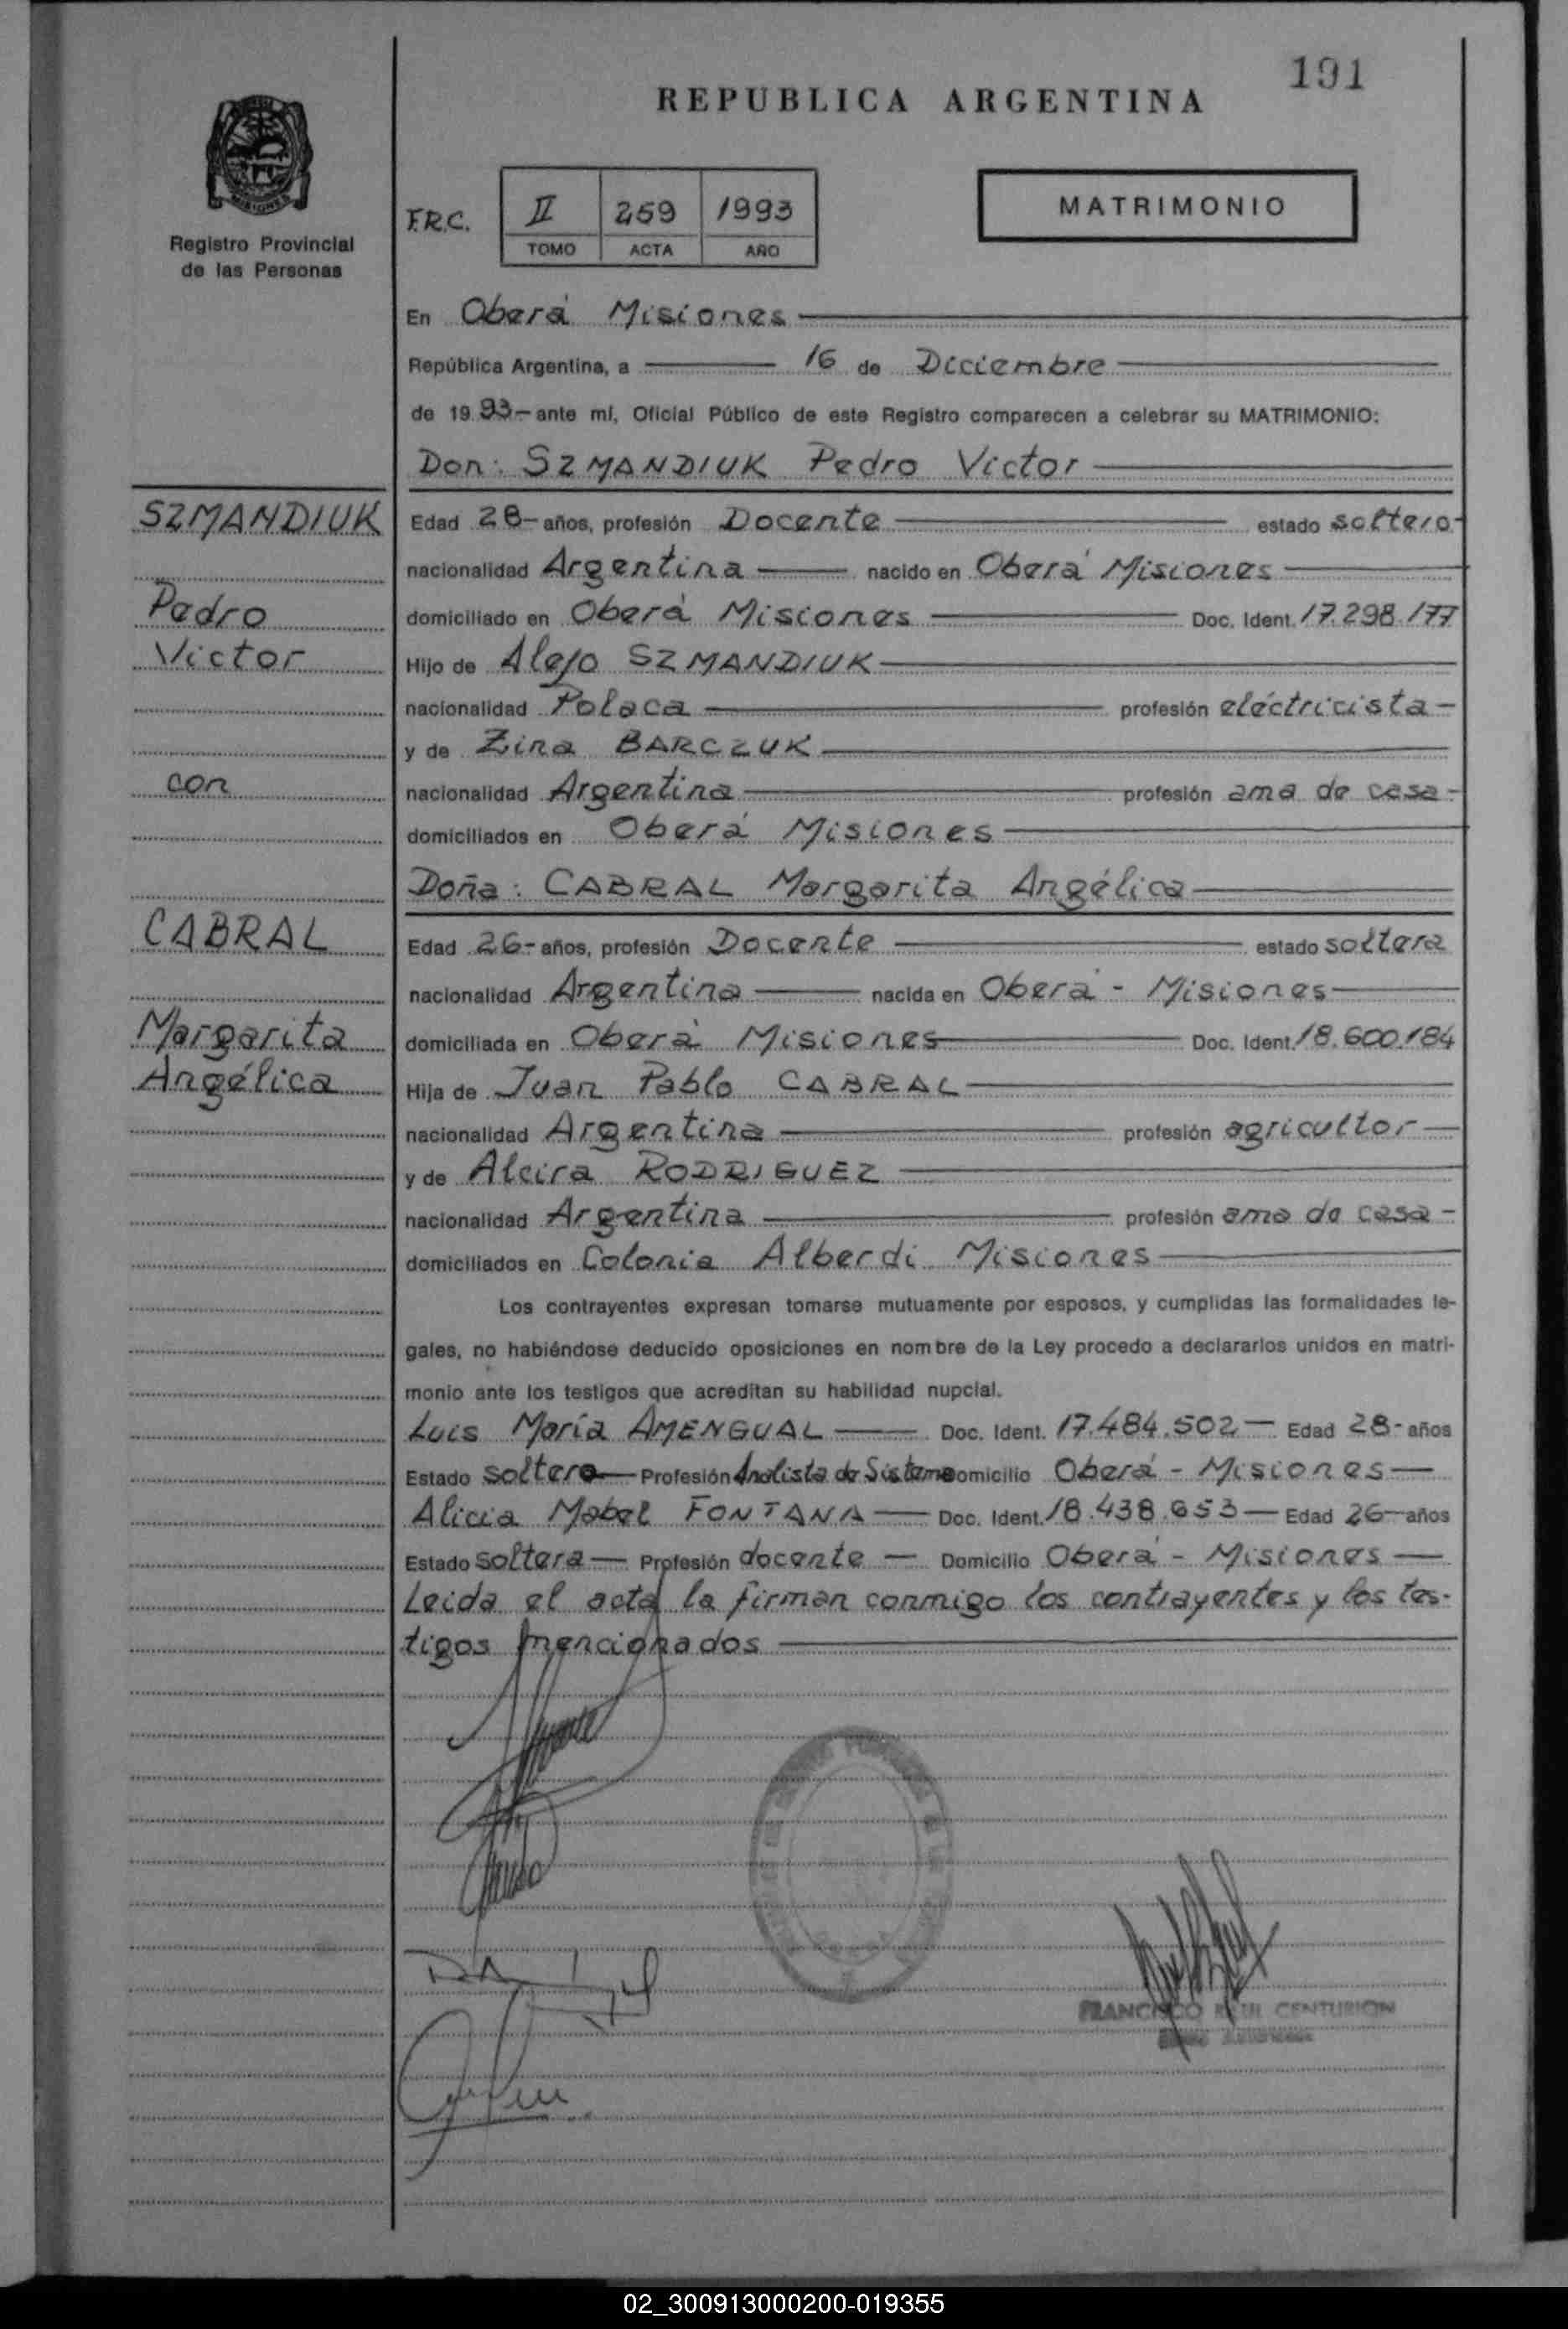 191
REPUBLICA ARGENTINA
MISIONES
Registro Provincial
de las Personas
F.R.C.
II 259 1993
TOMO ACTA AÑO
MATRIMONIO
En Oberá Misiones
República Argentina, a 16 de Diciembre
de 19 93- ante mí, Oficial Público de este Registro comparecen a celebrar su MATRIMONIO:
Don: SZMANDIUK Pedro Victor
SZMANDIUK
Edad 28- años, profesión Docente estado soltero-
nacionalidad Argentina nacido en Oberá Misiones
Pedro
domiciliado en Oberá Misiones Doc. Ident. 17.298.177
Victor
Hijo de Alejo SZMANDIUK
nacionalidad Polaca profesión eléctricista-
y de Zina BARCZUK
con
nacionalidad Argentina profesión ama de casa-
domiciliados en Oberá Misiones
Doña: CABRAL Margarita Angélica
CABRAL
Edad 26- años, profesión Docente estado soltera
nacionalidad Argentina nacida en Oberá - Misiones
Margarita
domiciliada en Oberá Misiones Doc. Ident. 18.600.184
Angélica
Hija de Juan Pablo CABRAL
nacionalidad Argentina profesión agricultor
y de Alcira RODRIGUEZ
nacionalidad Argentina profesión ama de casa-
domiciliados en Colonia Alberdi Misiones
Los contrayentes expresan tomarse mutuamente por esposos, y cumplidas las formalidades le-
gales, no habiéndose deducido oposiciones en nombre de la Ley procedo a declararlos unidos en matri-
monio ante los testigos que acreditan su habilidad nupcial.
Luis María AMENGUAL Doc. Ident. 17.484.502- Edad 28- años
Estado soltero Profesión Analista de Sistema Domicilio Oberá - Misiones
Alicia Mabel FONTANA Doc. Ident. 18.438.653 Edad 26 años
Estado soltera Profesión docente Domicilio Oberá - Misiones
Leida el acta la firman conmigo los contrayentes y los tes-
tigos mencionados
FRANCISCO RAUL CENTURION
02_300913000200-019355